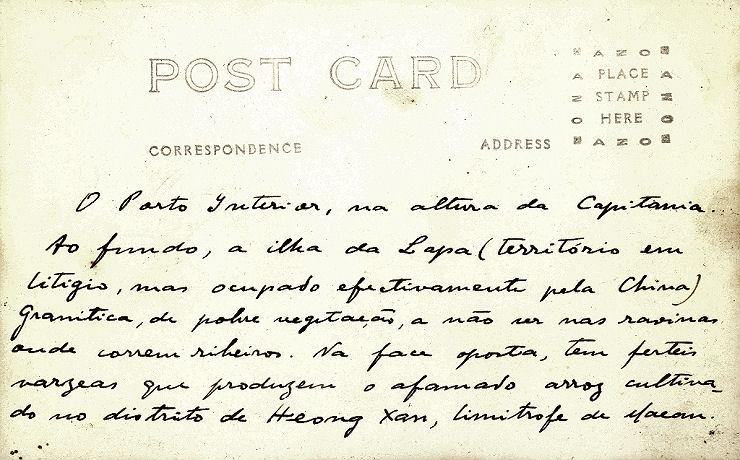 POST CARD
AZO
PLACE
STAMP
HERE
AZO
CORRESPONDENCE
ADDRESS
O Porto Interior, na altura da Capitania.
Ao fundo, a ilha da Lapa (território em
litigio, mas ocupado efectivamente pela China)
Granitica, de pobre vegetação, a não ser nas ravinas
onde correm ribeiros. Na face oposta, tem ferteis
varzeas que produzem o afamado arroz cultiva-
do no distrito de Heong Xan, limitrofe de Macau.